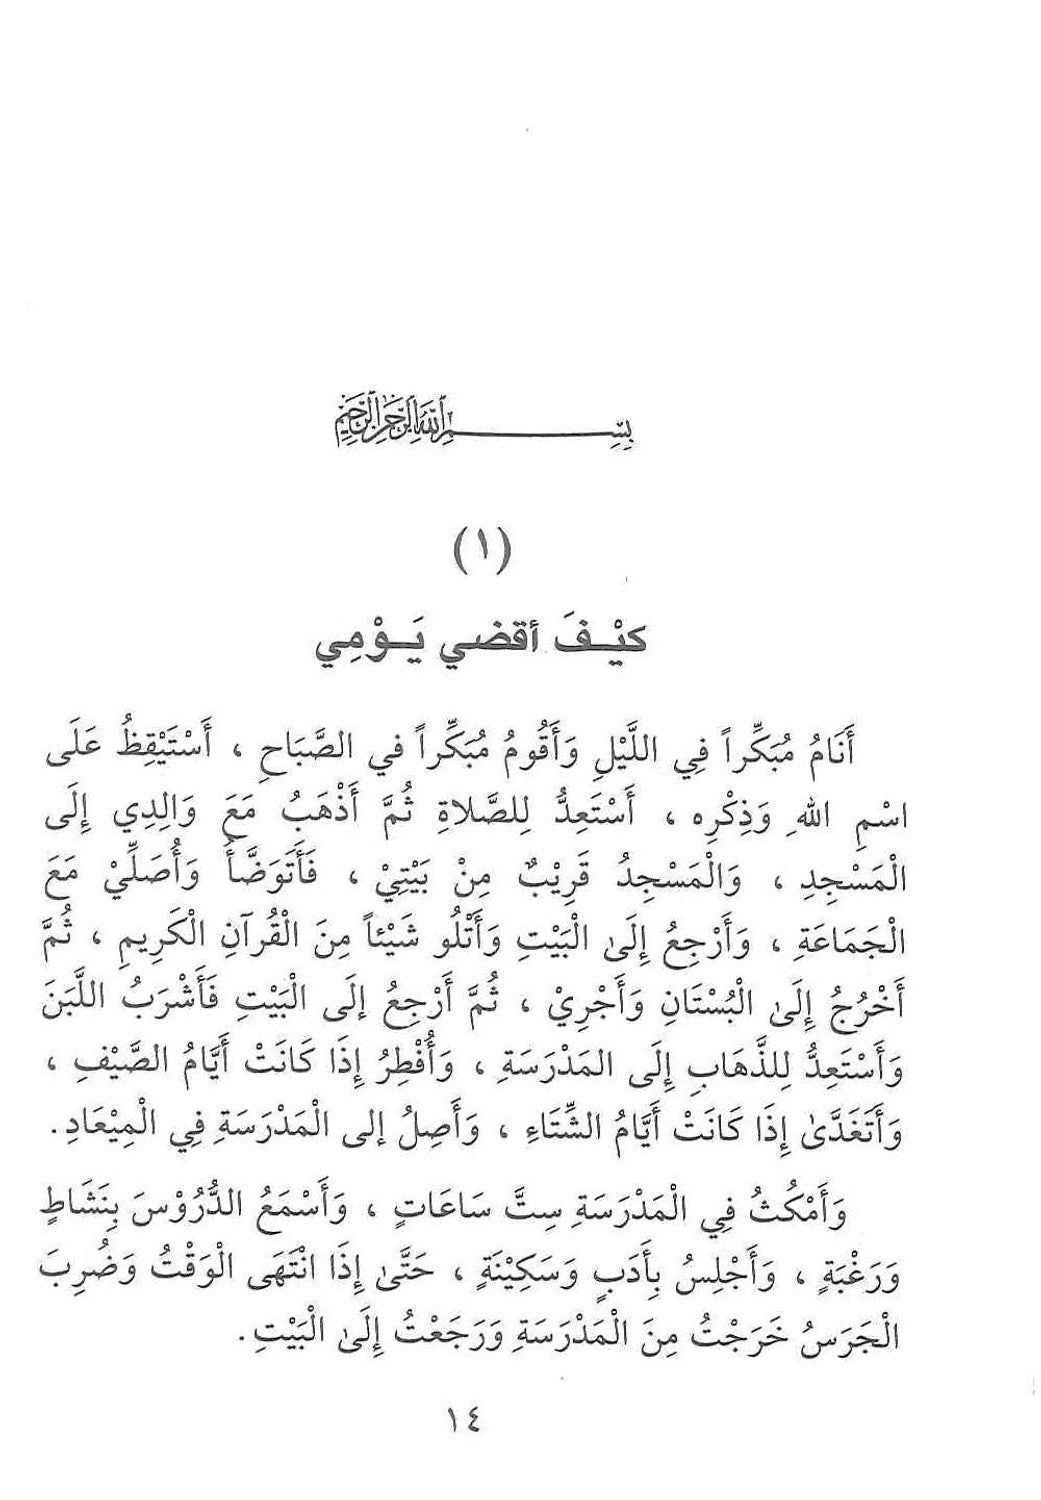 بِسْمِ اللهِ الرَّحْمٰنِ الرَّحِيْمِ
(١)
كَيْفَ أقضي يَوْمِي
أَنَامُ مُبَكِّراً فِي اللَّيْلِ وَأَقُومُ مُبَكِّراً في الصَّبَاحِ ، أَسْتَيْقِظُ عَلَى
اسْمِ اللهِ وَذِكْرِه ، أَسْتَعِدُّ لِلصَّلاةِ ثُمَّ أَذْهَبُ مَعَ وَالِدِي إِلَى
الْمَسْجِدِ ، وَالْمَسْجِدُ قَرِيْبٌ مِنْ بَيْتِيْ ، فَأَتَوَضَّأُ وَأُصَلِّيْ مَعَ
الْجَمَاعَةِ ، وَأَرْجِعُ إِلَىٰ الْبَيْتِ وَأَتْلُو شَيْئاً مِنَ الْقُرآنِ الْكَرِيمِ ، ثُمَّ
أَخْرُجُ إِلَىٰ الْبُسْتَانِ وَأَجْرِيْ ، ثُمَّ أَرْجِعُ إلَى الْبَيْتِ فَأَشْرَبُ اللَّبَنَ
وَأَسْتَعِدُّ لِلذَّهَابِ إِلَى المَدْرَسَةِ ، وَأُفْطِرُ إِذَا كَانَتْ أَيَّامُ الصَّيْفِ ،
وَأَتَغَدَّىٰ إِذَا كَانَتْ أَيَّامُ الشِّتَاءِ ، وَأَصِلُ إلى الْمَدْرَسَةِ فِي الْمِيْعَادِ.
وَأَمْكُثُ فِي الْمَدْرَسَةِ سِتَّ سَاعَاتٍ ، وَأَسْمَعُ الدُّرُوْسَ بِنَشَاطٍ
وَرَغْبَةٍ ، وَأَجْلِسُ بِأَدَبٍ وَسَكِيْنَةٍ ، حَتَّىٰ إِذَا انْتَهَى الْوَقْتُ وَضُرِبَ
الْجَرَسُ خَرَجْتُ مِنَ الْمَدْرَسَةِ وَرَجَعْتُ إِلَىٰ الْبَيْتِ.
١٤